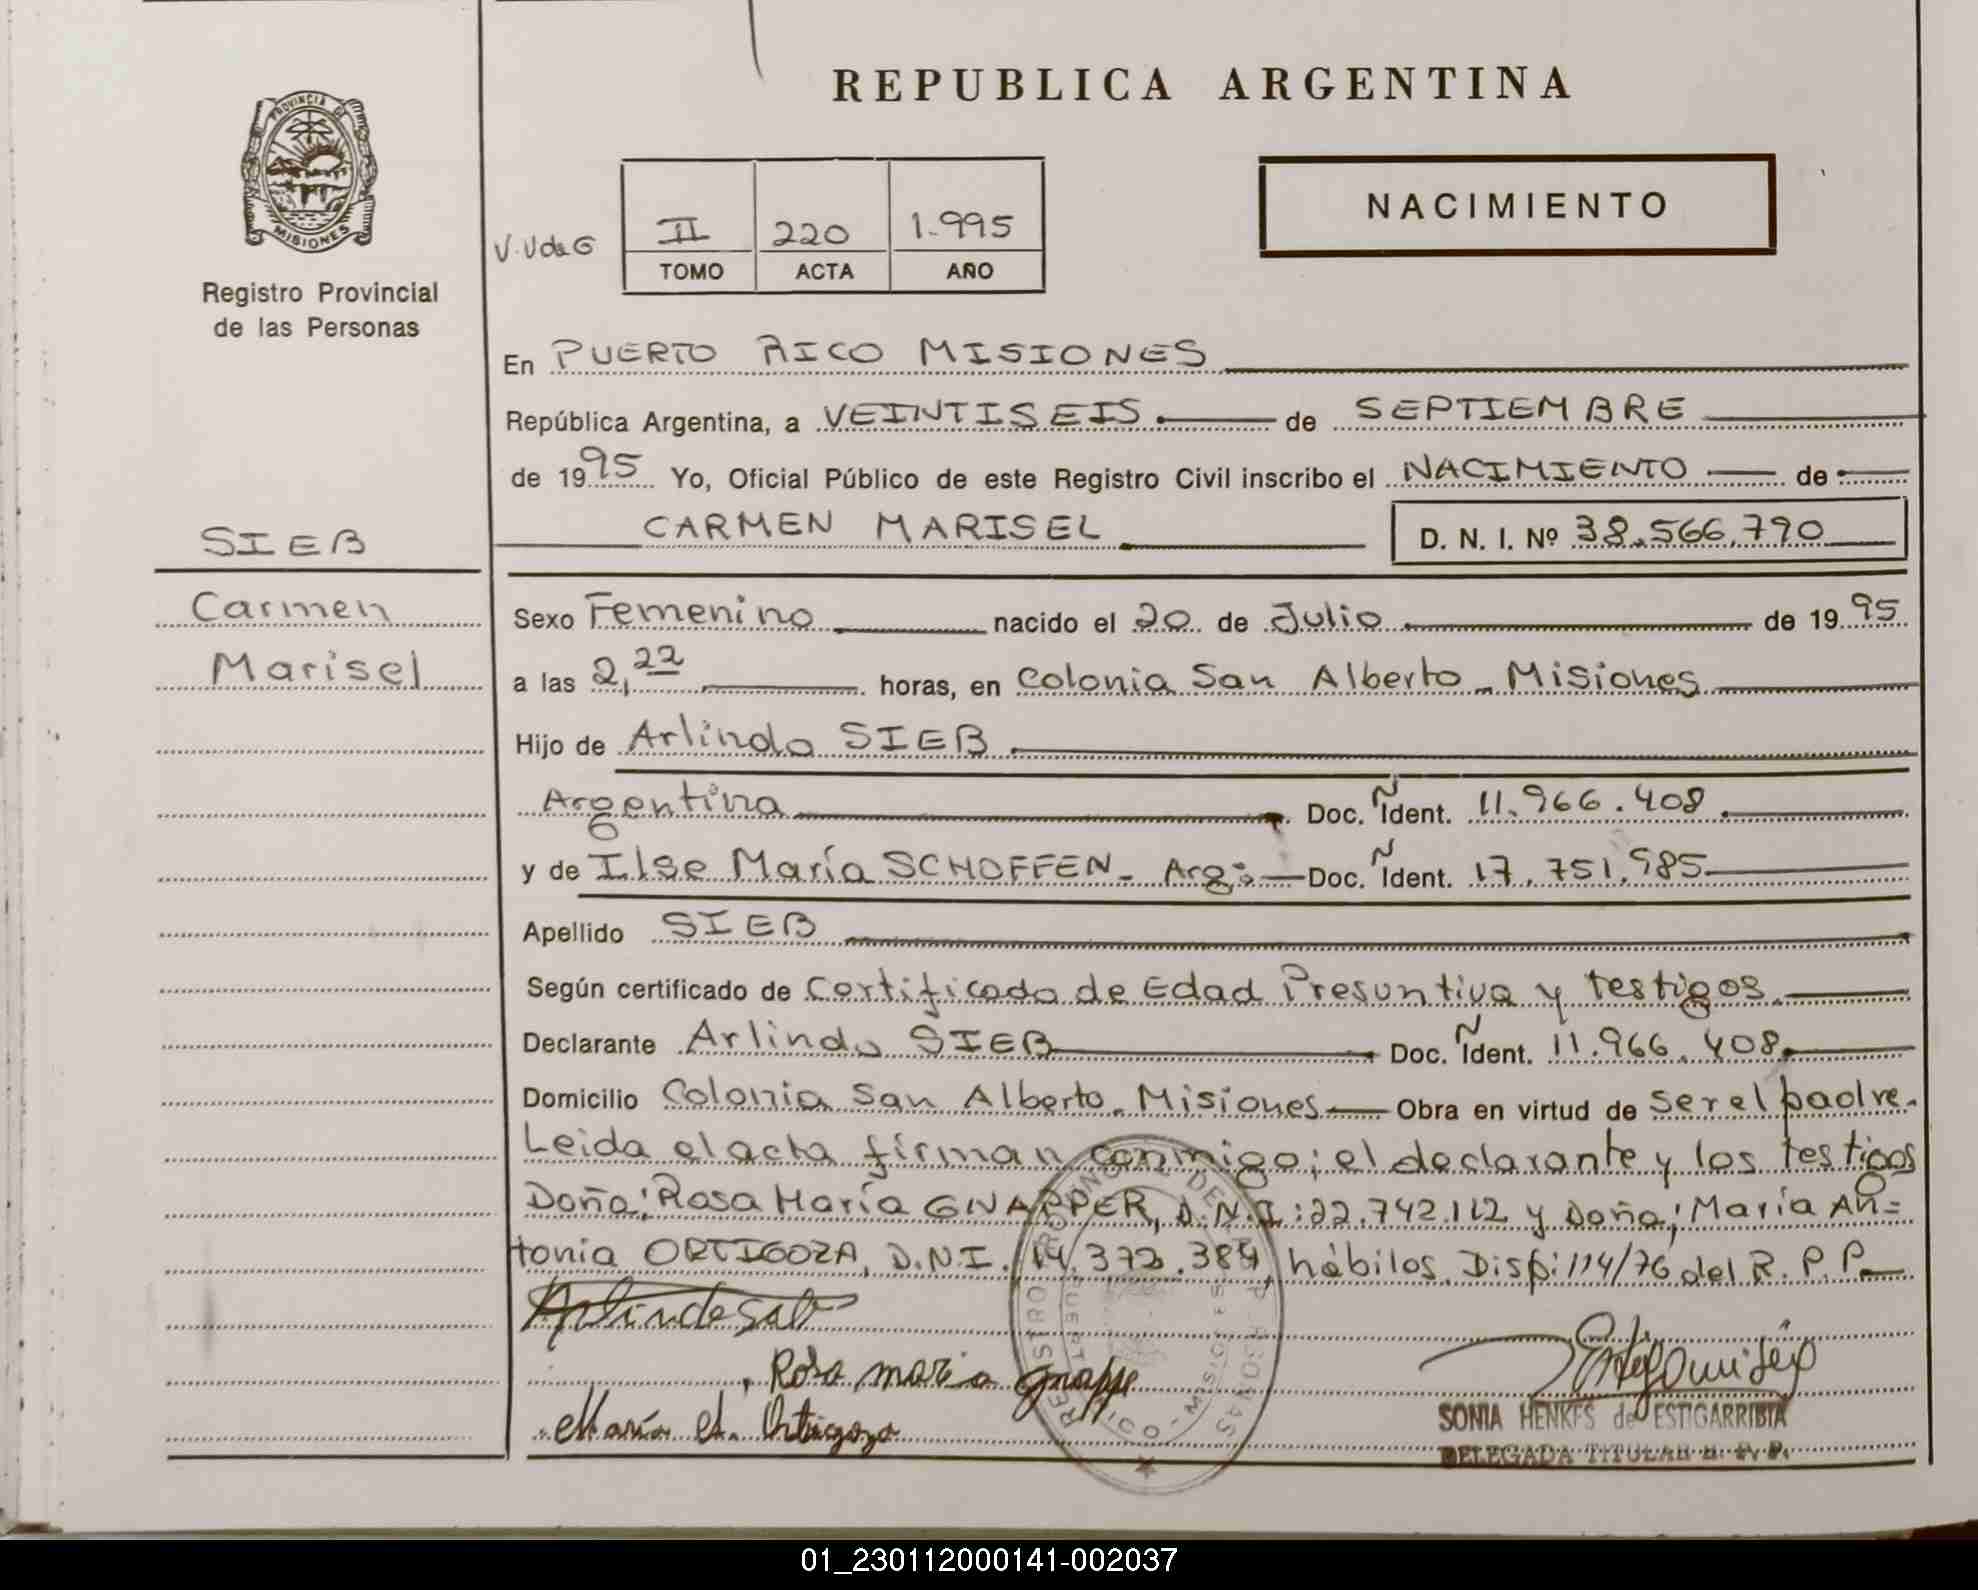 REPUBLICA ARGENTINA
PROVINCIA DE
MISIONES
Registro Provincial
de las Personas
V.VdeG
II 220 1.995
TOMO ACTA AÑO
NACIMIENTO
En PUERTO RICO MISIONES
República Argentina, a VEINTISEIS. de SEPTIEMBRE
de 1995 Yo, Oficial Público de este Registro Civil inscribo el NACIMIENTO de
CARMEN MARISEL D. N. I. Nº 38.566.790
SIEB
Carmen
Marisel
Sexo Femenino nacido el 20 de Julio de 1995
a las 2,22 horas, en Colonia San Alberto - Misiones
Hijo de Arlindo SIEB
Argentina Doc. Ñ Ident. 11.966.408
y de Ilse María SCHOFFEN - Arg: Doc. Ñ Ident. 17.751.985
Apellido SIEB
Según certificado de Certificado de Edad Presuntiva y testigos.
Declarante Arlindo SIEB Doc. Ñ Ident. 11.966.408
Domicilio Colonia San Alberto - Misiones Obra en virtud de ser el padre.
Leida el acta firman conmigo; el declarante y los testigos
Doña: Rosa María GNAPPER, D.N.I: 22.742.112 y Doña; María An=
tonia ORTIGOZA, D.N.I. 14.372.384, hábiles. Disp: 114/76 del R.P.P.
Rosa maria gnappe
Maria A. Ortigoza
SONIA HENKES de ESTIGARRIBIA
DELEGADA TITULAR R. P. P.
01_230112000141-002037